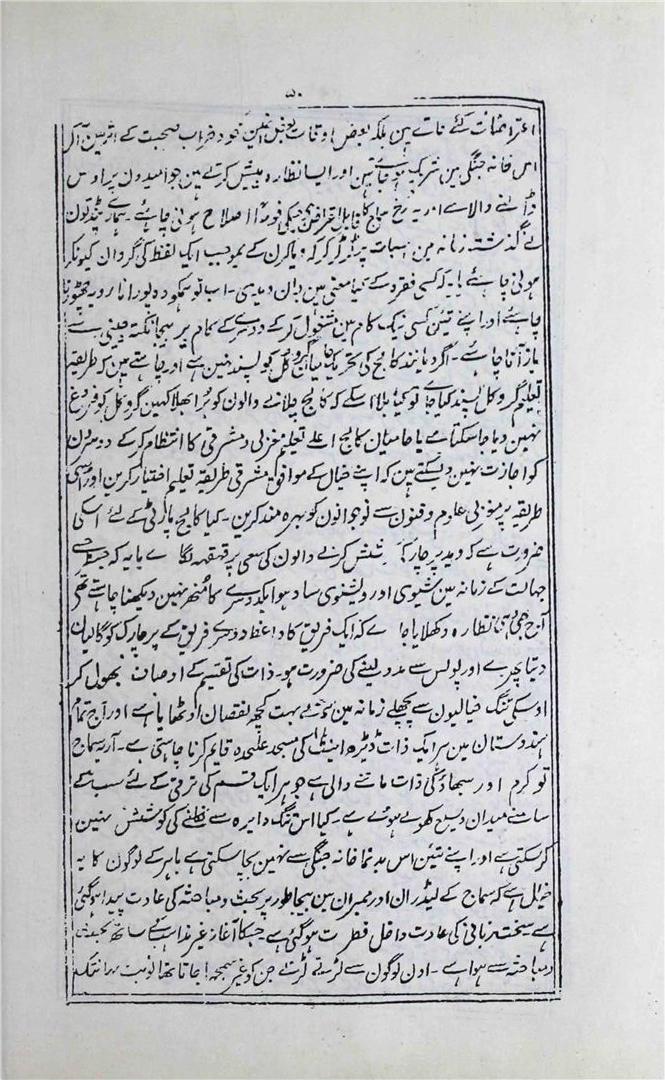 ۷۰
اعتراضات کئے جاتے ہین بلکہ بعض اوقات بعض انمین خود خراب صحبت کے اثر مین آکر
اس خانہ جنگی مین شریک ہو جاتے ہین اور ایسا نظارہ پیش کرتے ہین جو امیدون پر اوس
ڈالنے والا ہے اور یہ رخ سماج کا قابل اعتراض ہے جسکی فوراً اصلاح ہونی چاہئے ۔ ہمارے پنڈتون
نے گذشتہ زمانہ مین اسبات پر لڑ لڑ کر کہ ویاکرن کے بموجب ایک لفظ کی گردان کیونکر
ہونی چاہئے یا یہ کہ کسی فقرہ کے کیا معنی ہین جان دیدی ۔ اب تو ہمکو وہ پورانا رویہ چھوڑنا
چاہئے اور اپنے تئین کسی نیک کام مین مشغول کر کے دوسرے کے کام پر بیجا نکتہ چینی سے
باز آنا چاہئے ۔ اگر دیانند کالج کی تحریک حامیان گوروکل کو پسند نہین ہے اور چاہتے ہین کہ طریقہ
تعلیم گروکل پسند کیا جاے تو کیا بلا اسکے کہ کالج چلانے والون کو برا بھلا کہین گروکل کو فروغ
نہین دیا جا سکتا ہے یا حامیان کالج اعلے تعلیم مغربی و مشرقی کا انتظام کر کے دوسرون
کو اجازت نہین دیسکتے ہین کہ اپنے خیال کے موافق مشرقی طریقہ تعلیم اختیار کرین اور اسی
طریقہ پر مغربی علوم و فنون سے نوجوانون کو بہرہ مند کرین ۔ کیا کالج پارٹی کے لئے اسکی
ضرورت ہے کہ وید پرچار کی کوشش کرنے والون کی سعی پر قہقہہ لگاے یا یہ کہ جسطرح
جہالت کے زمانہ مین شیوی اور ویشنوی سادہو ایک دوسرے کا منھ نہین دیکھنا چاہتے تھے
آج بھی وہی نظارہ دکھلایا جاے کہ ایک فریق کا واعظ دوسرے فریق کے پرچارک کو گالیان
دیتا پھرے اور پولس سے مدد لینے کی ضرورت ہو ۔ ذات کی تقسیم کے اوصاف بھول کر
اوسکی تنگ خیالیون سے پچھلے زمانہ مین ہمنے بہت کچھ نقصان اوٹھایا ہے اور آج تمام
ہندوستان مین ہر ایک ذات ڈیڑہ اینٹ کی مسجد علٰحدہ قایم کرنا چاہتی ہے ۔ آریہ سماج
تو کرم اور سبھاؤ کی ذات ماننے والی ہے جو ہر ایک قسم کی ترقی کے لئے سب کے
سامنے میدان وسیع کھولے ہوئے ہے ۔ کیا اس تنگ دایرہ سے نکلنے کی کوشش نہین
کر سکتی ہے اور اپنے تئین اس بدنما خانہ جنگی سے نہین بچا سکتی ہے باہر کے لوگون کا یہ
خیال ہے کہ سماج کے لیڈران اور ممبران مین بیجا طور پر بحث و مباحثہ کی عادت پیدا ہو گئی
ہے سخت زبانی کی عادت داخل فطرت ہو گئی ہے ۔ جسکا آغاز غیر مذاہب کے ساتھ بحث
و مباحثہ سے ہوا ہے ۔ اون لوگون سے لڑتے لڑتے جن کو غیر سمجھا جاتا تھا نوبت یہانتک